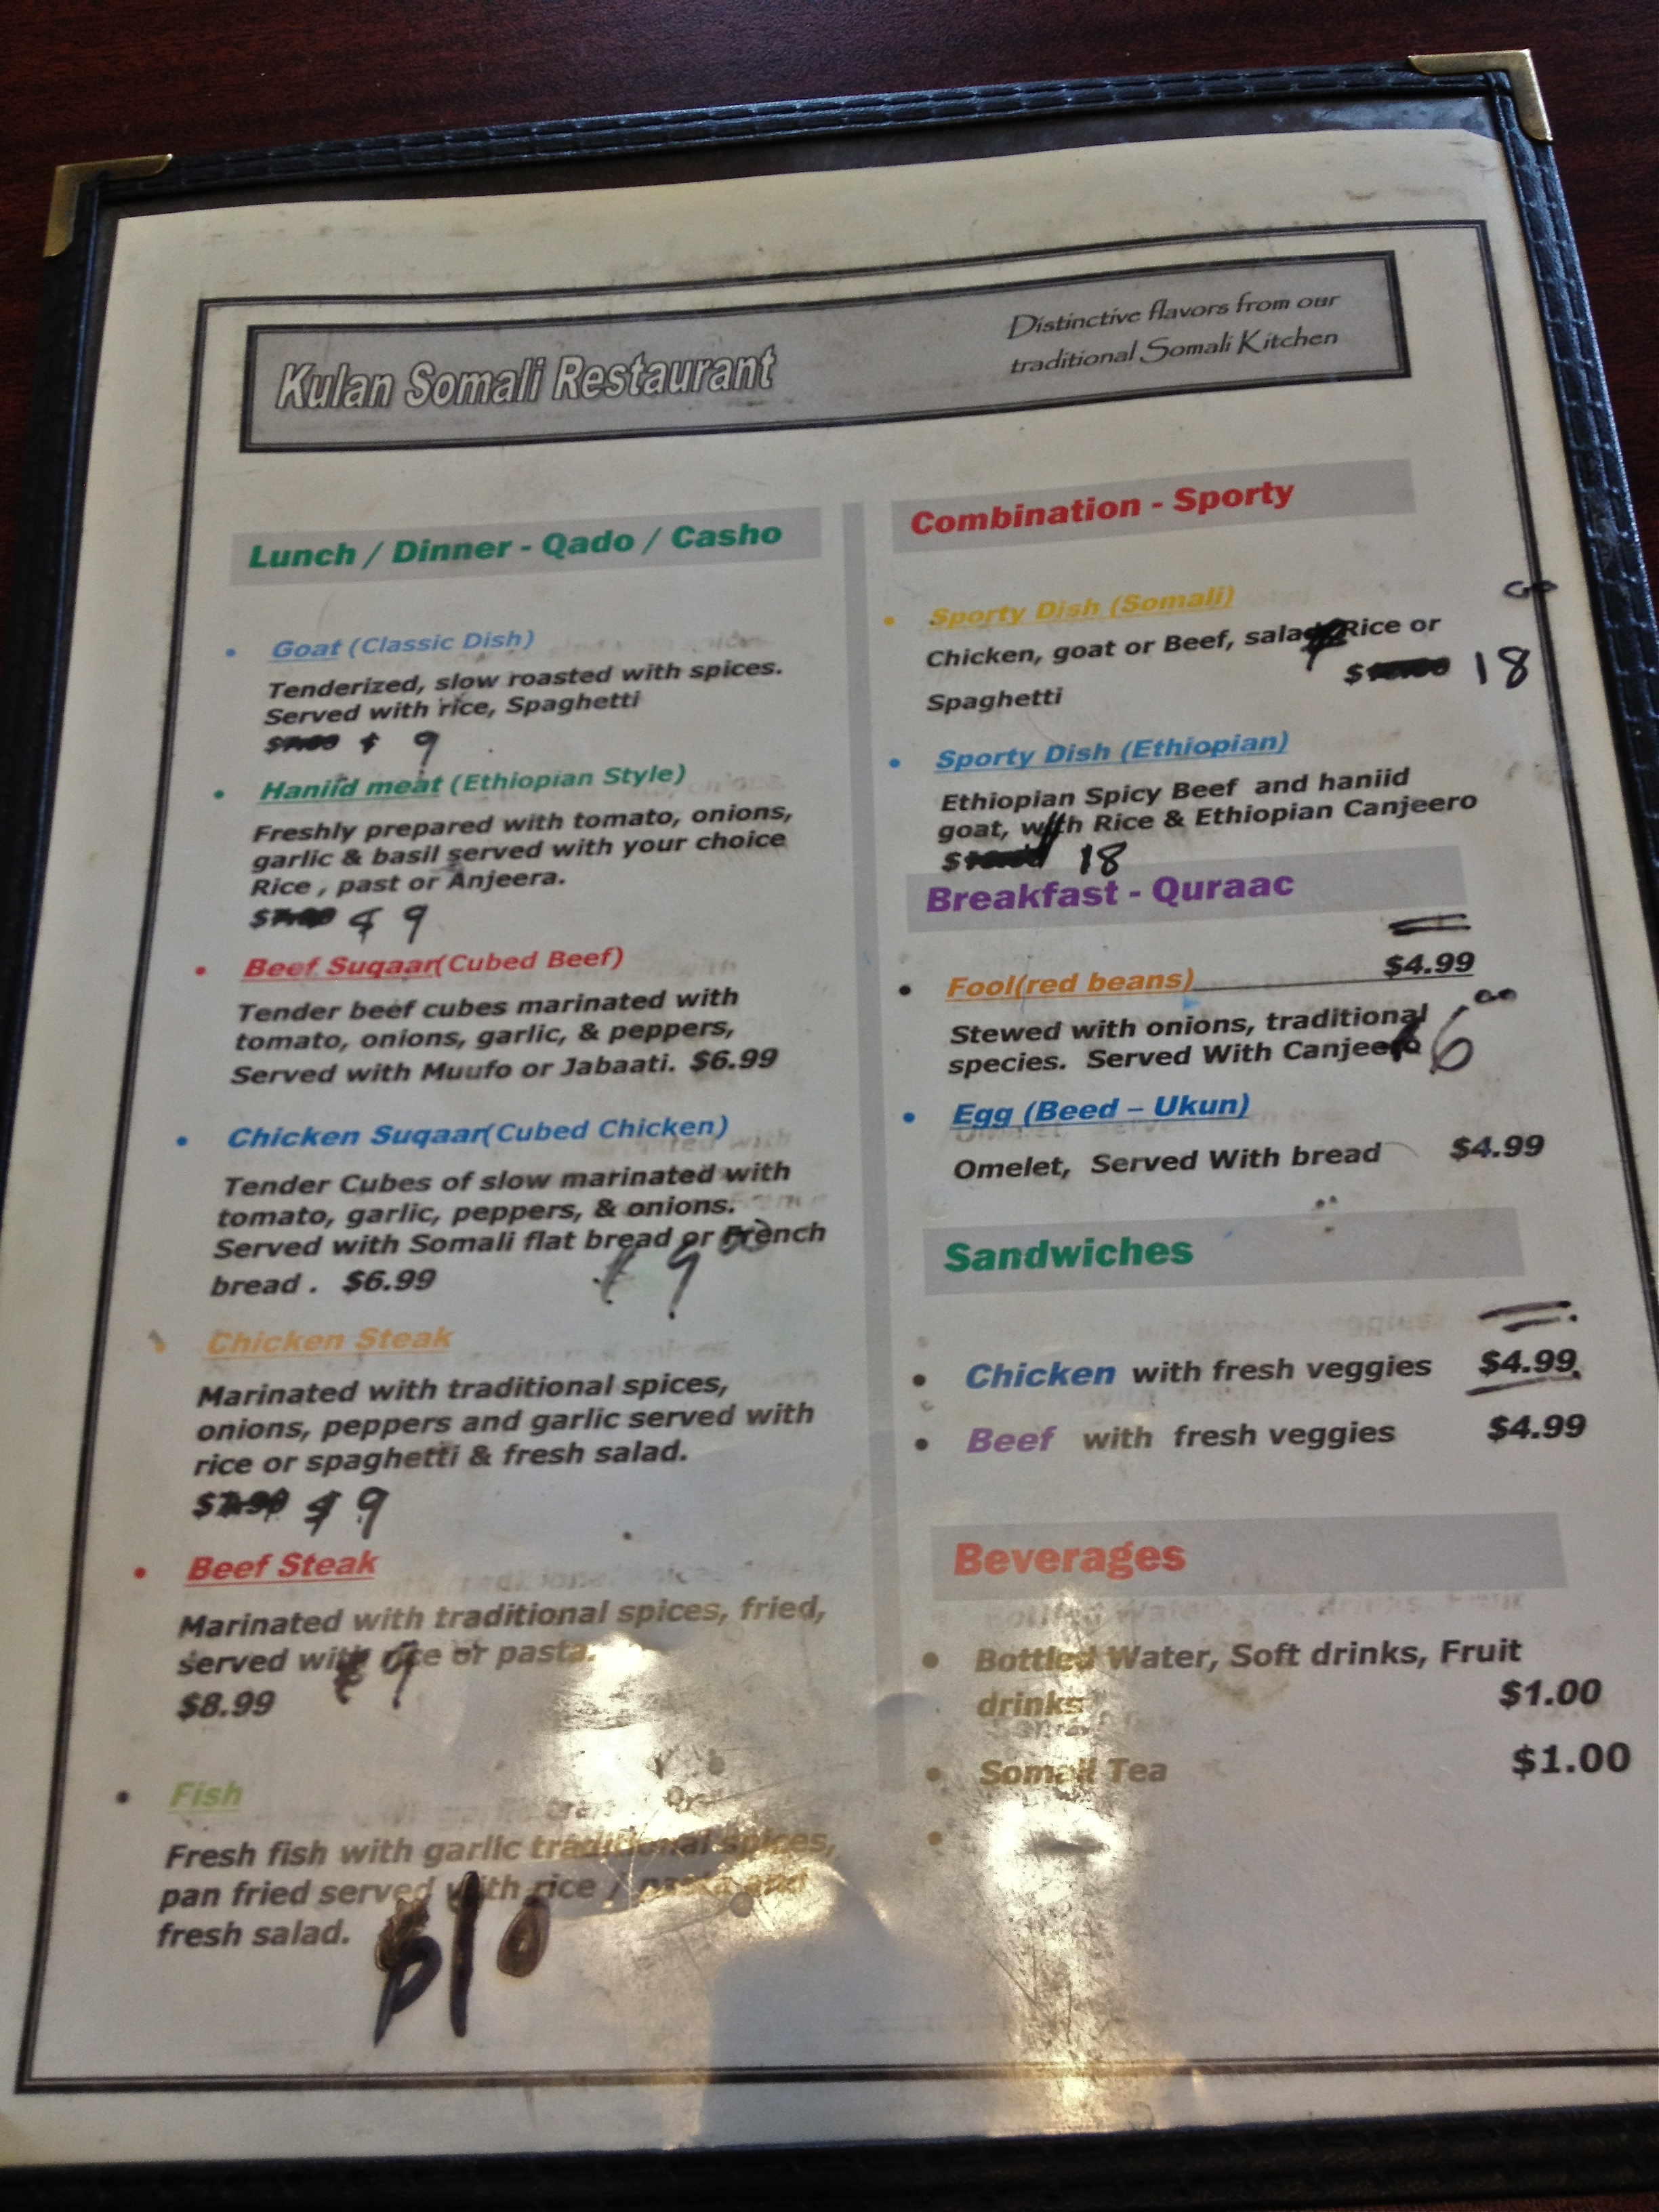 Kulan Somali Restaurant
Distinctive flavors from our
traditional Somali Kitchen
Lunch / Dinner - Qado / Casho
Goat (Classic Dish)
Tenderized, slow roasted with spices.
Served with rice, Spaghetti
$ $ 9
Haniid meat (Ethiopian Style)
Freshly prepared with tomato, onions,
garlic & basil served with your choice
Rice , past or Anjeera.
$ $ 9
Beef Suqaar(Cubed Beef)
Tender beef cubes marinated with
tomato, onions, garlic, & peppers,
Served with Muufo or Jabaati. $6.99
Chicken Suqaar(Cubed Chicken)
Tender Cubes of slow marinated with
tomato, garlic, peppers, & onions.
Served with Somali flat bread or French
bread . $6.99 $ 9 00
Chicken Steak
Marinated with traditional spices,
onions, peppers and garlic served with
rice or spaghetti & fresh salad.
$7.99 $ 9
Beef Steak
Marinated with traditional spices, fried,
served with rice or pasta.
$8.99 $ 9
Fish
Fresh fish with garlic traditional spices,
pan fried served with rice / pasta and
fresh salad.
$10
Combination - Sporty
Sporty Dish (Somali)
Chicken, goat or Beef, salad, Rice or
Spaghetti
$ 18 00
Sporty Dish (Ethiopian)
Ethiopian Spicy Beef and haniid
goat, with Rice & Ethiopian Canjeero
$ 18
Breakfast - Quraac
Fool(red beans) $4.99
Stewed with onions, traditional
species. Served With Canjeero
$6 00
Egg (Beed – Ukun)
Omelet, Served With bread $4.99
Sandwiches
Chicken with fresh veggies $4.99
Beef with fresh veggies $4.99
Beverages
Bottled Water, Soft drinks, Fruit
drinks $1.00
Somali Tea $1.00